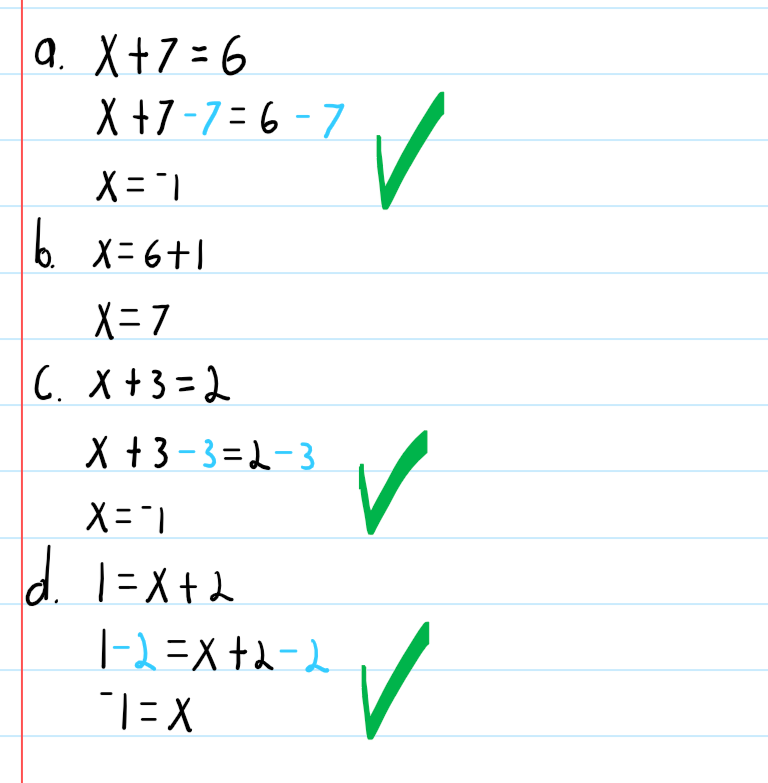 a. x+7=6
x+7-7=6-7
x=⁻1
b. x=6+1
x=7
c. x+3=2
x+3-3=2-3
x=⁻1
d. 1=x+2
1-2=x+2-2
⁻1=x